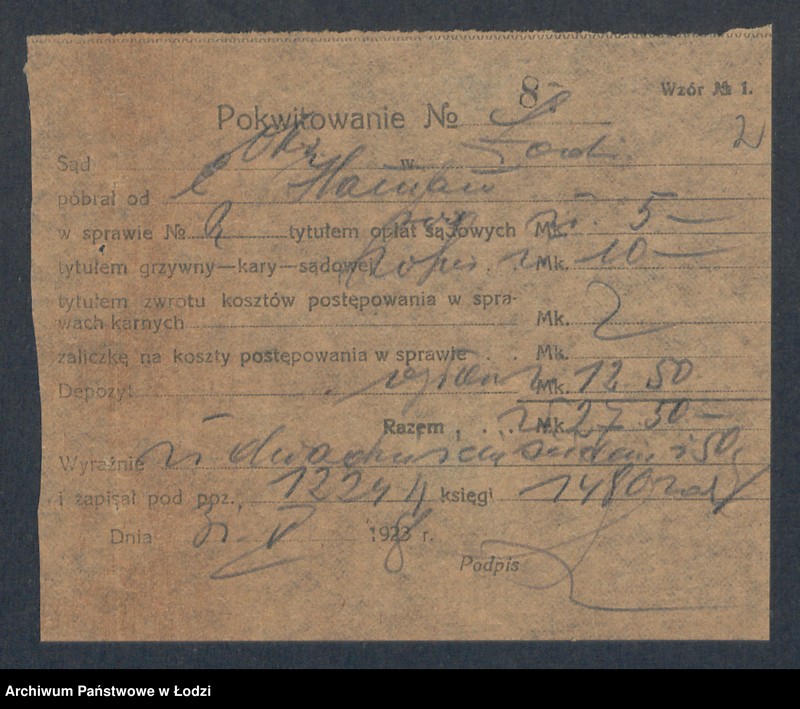 Wzór № 1.
8
Pokwitowanie №
2
Sąd Okr w Łodzi
pobrał od
w sprawie № tytułem opłat sądowych Mk. zł. 5 —
tytułem grzywny—kary—sądowej Mk. 10 —
tytułem zwrotu kosztów postępowania w spra-
wach karnych Mk. 2
zaliczkę na koszty postępowania w sprawie Mk.
Depozyt Mk. 12 50
Razem Mk. zł 27 50 —
Wyraźnie zł dwadzieścia siedem i 50 g
i zapisał pod poz., 12244 księgi 1480
Dnia 1928 r.
Podpis
Archiwum Państwowe w Łodzi